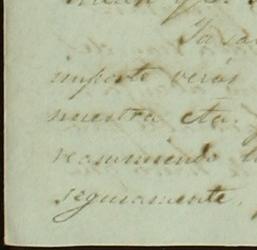 Ya sa
importe verás
nuestra cta.
recommiendo
seguramente,